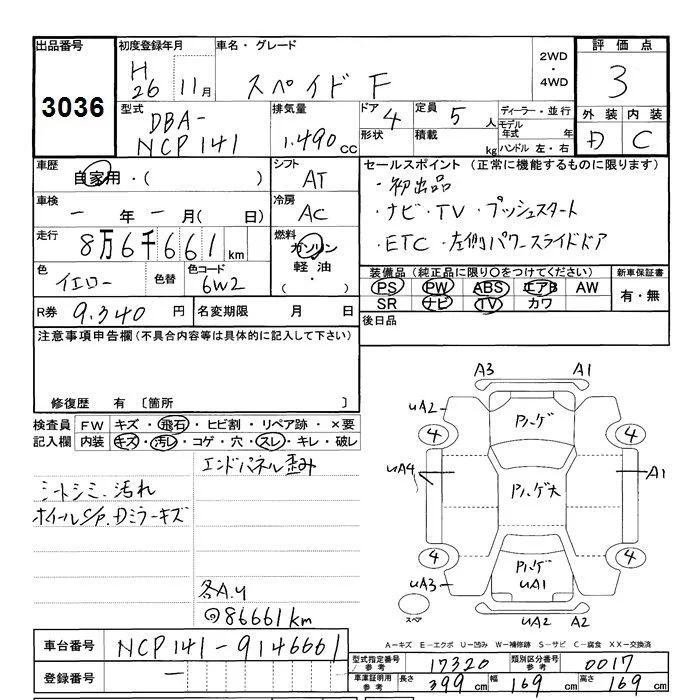 出品番号
3036
初度登録年月
H 26 年 11 月
車名・グレード
スペイド F
2WD
・
4WD
評価点
3
型式
DBA-
NCP141
排気量
1.490 CC
ドア 4
形状
定員 5 人
積載 kg
ディーラー・並行
モデル
年式 年
ハンドル 左・右
外装 内装
D C
車歴
自家用・( )
シフト
AT
車検
一 年 一 月( 日)
冷房
AC
走行
8万6千661 km
燃料
ガソリン
軽油
・
( )
色
イエロー
色替
色コード
6W2
R券 9.340 円
名変期限 月 日
セールスポイント (正常に機能するものに限ります)
・初出品
・ナビ・TV・プッシュスタート
・ETC・左側パワースライドドア
装備品 (純正品に限り○をつけてください)
新車保証書
PS PW ABS エアB AW
SR ナビ TV カワ
有・無
後日品
注意事項申告欄 (不具合内容等は具体的に記入して下さい)
修復歴 有 〔箇所 〕
検査員
記入欄
FW キズ・飛石・ヒビ割・リペア跡・×要
内装 キズ・汚レ・コゲ・穴・スレ・キレ・破レ
エンドパネル歪み
シートシミ、汚れ
ホイールS/P.Dミラーキズ
各A.U
86661km
A3 A1
UA2
Pハゲ
4 4
UA4
Pハゲ大
A1
4 4
Pハゲ
UA1
UA3
スペア
UA2 A2
A-キズ E-エクボ U-凹み W-補修跡 S-サビ C-腐食 XX-交換済
車台番号 NCP141-9146661
登録番号 一
型式指定番号 17320
類別区分番号 0017
車庫証明用
参考
長さ 399 cm
幅 169 cm
高さ 169 cm